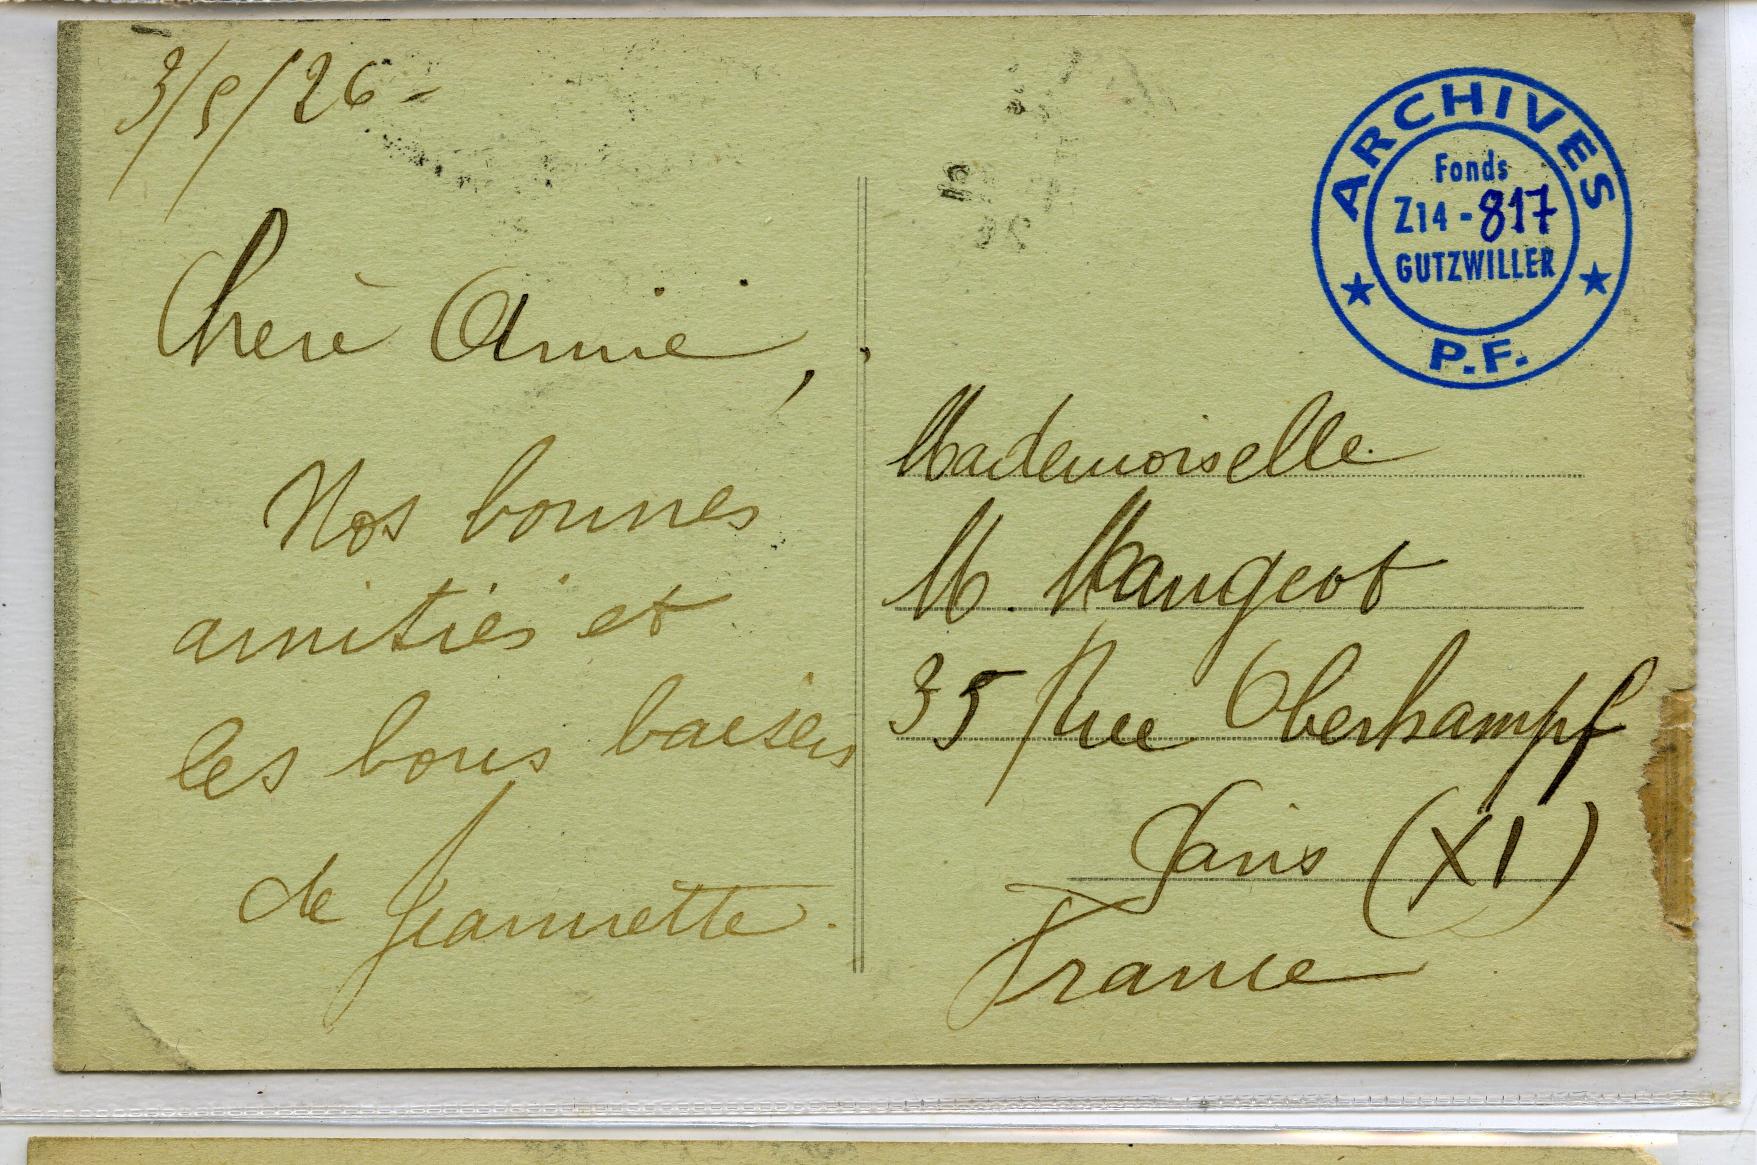 3/5/26 -
Chère Amie,
Nos bonnes
amitiés et
les bons baisers
de Jeannette.
ARCHIVES
Fonds
Z14 - 817
GUTZWILLER
P.F.
Mademoiselle
M. Maugeot
35 Rue Oberkampf
Paris (XI)
France